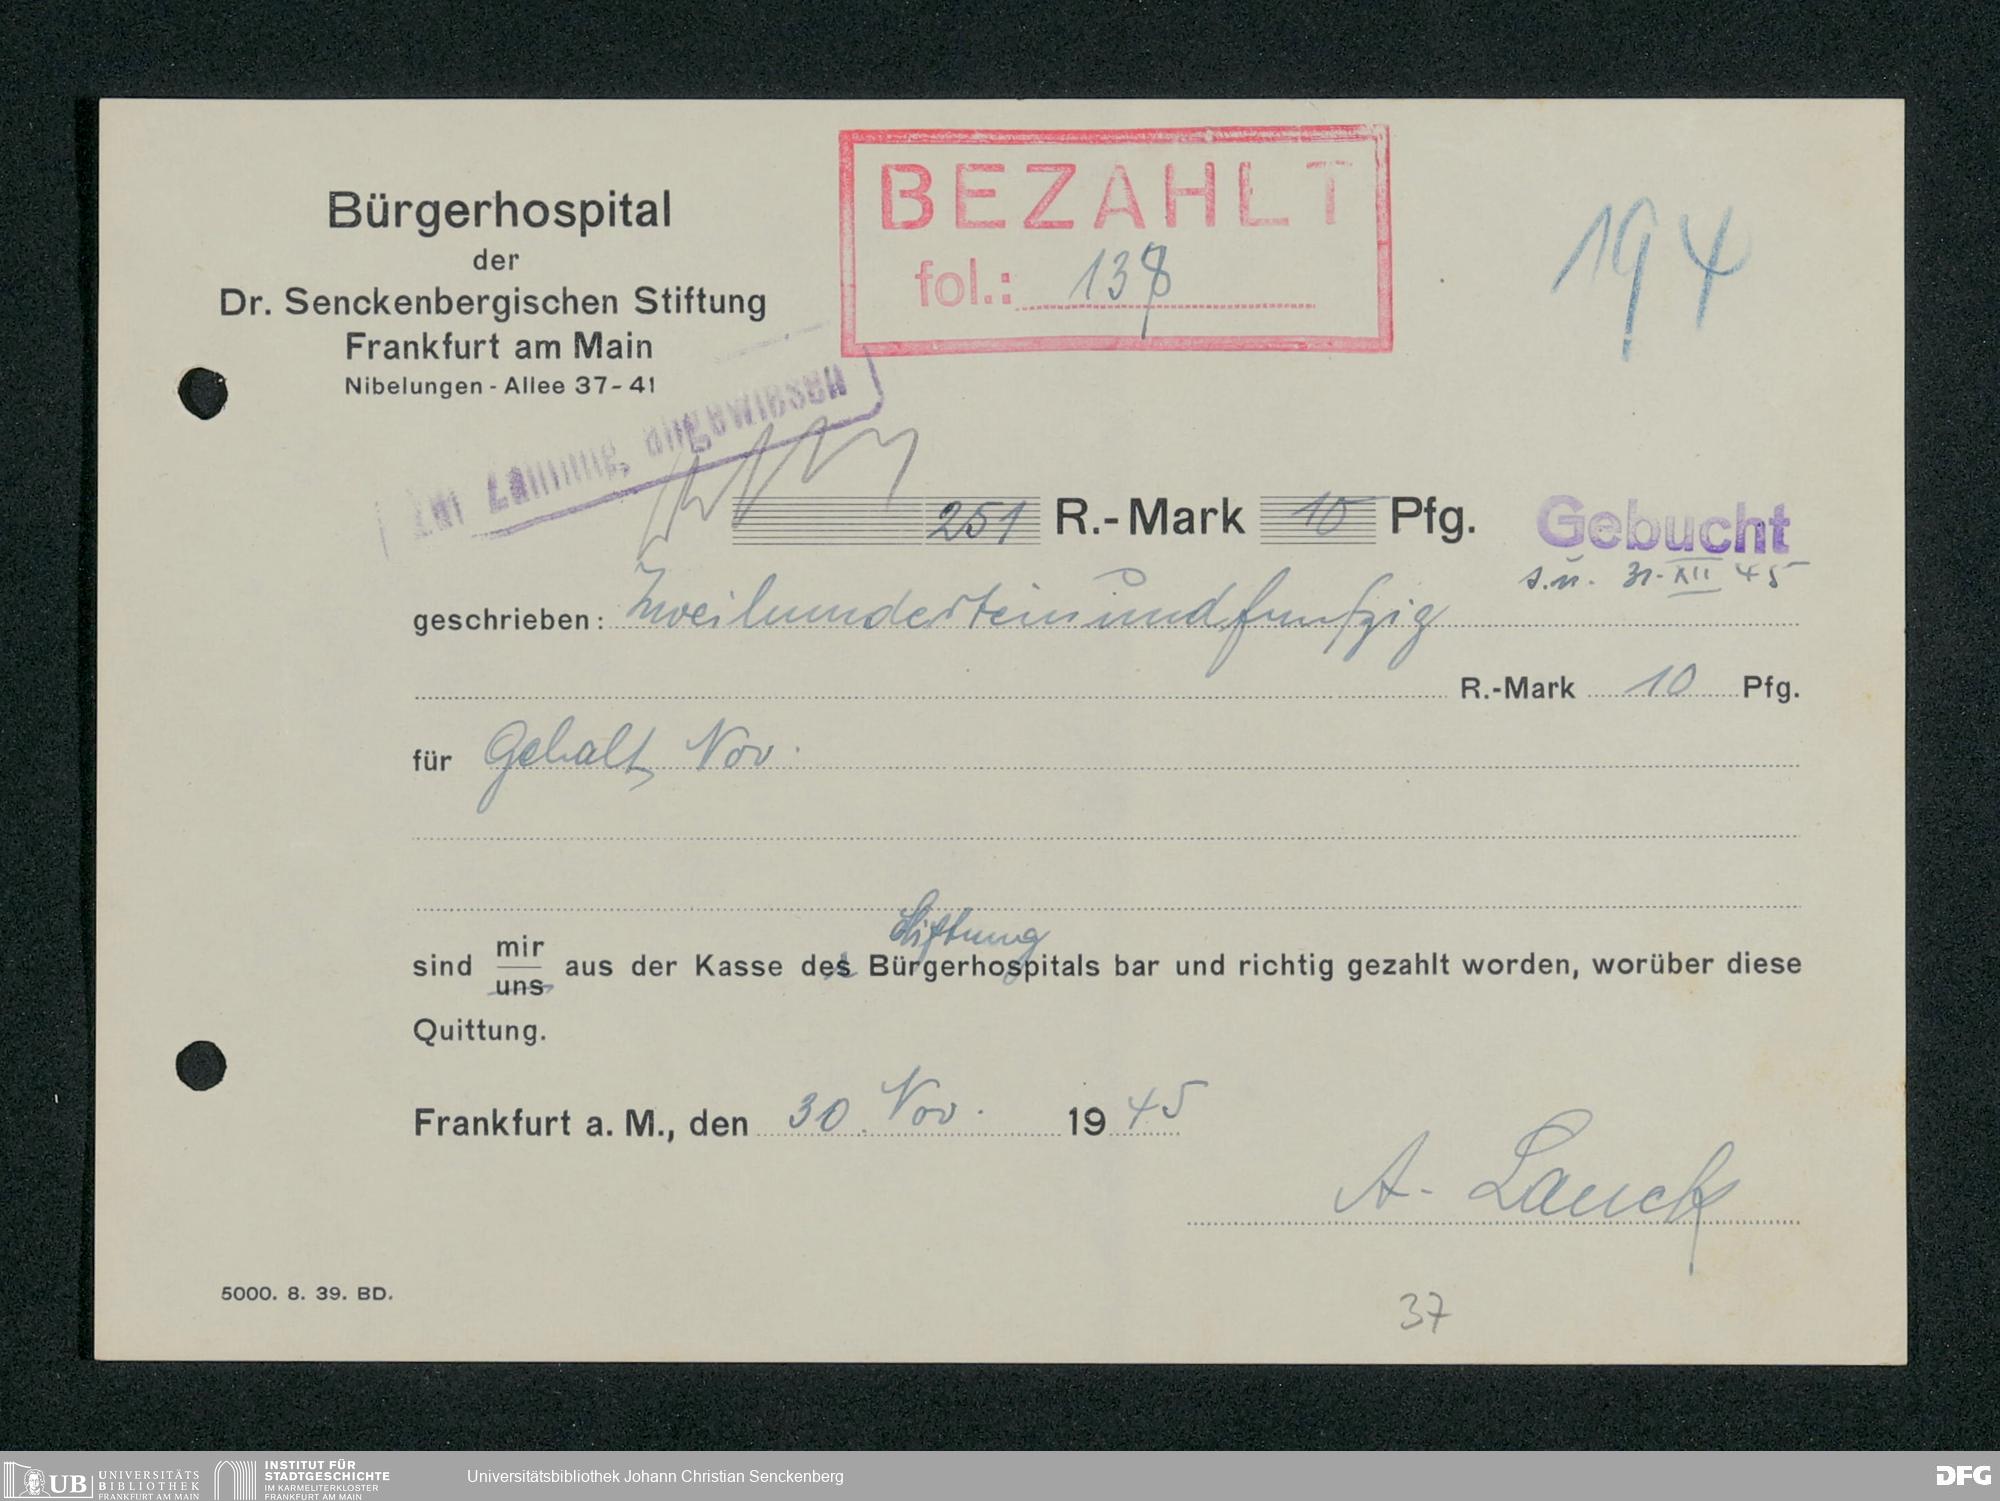 Bürgerhospital
der
Dr. Senckenbergischen Stiftung
Frankfurt am Main
Nibelungen - Allee 37-41
BEZAHLT
fol.: 138
194
Zur Zahlung angewiesen
251 R.-Mark 10 Pfg.
Gebucht
s.u. 31. XII 45
geschrieben: Zweihunderteinundfunfzig
R.-Mark 10 Pfg.
für Gehalt Nov.
Stiftung
sind mir aus der Kasse des Bürgerhospitals bar und richtig gezahlt worden, worüber diese
uns
Quittung.
Frankfurt a. M., den 30. Nov. 1945
A. Lauck
5000. 8. 39. BD.
37
UB UNIVERSITÄTS
BIBLIOTHEK
FRANKFURT AM MAIN
INSTITUT FÜR
STADTGESCHICHTE
IM KARMELITERKLOSTER
FRANKFURT AM MAIN
Universitätsbibliothek Johann Christian Senckenberg
DFG